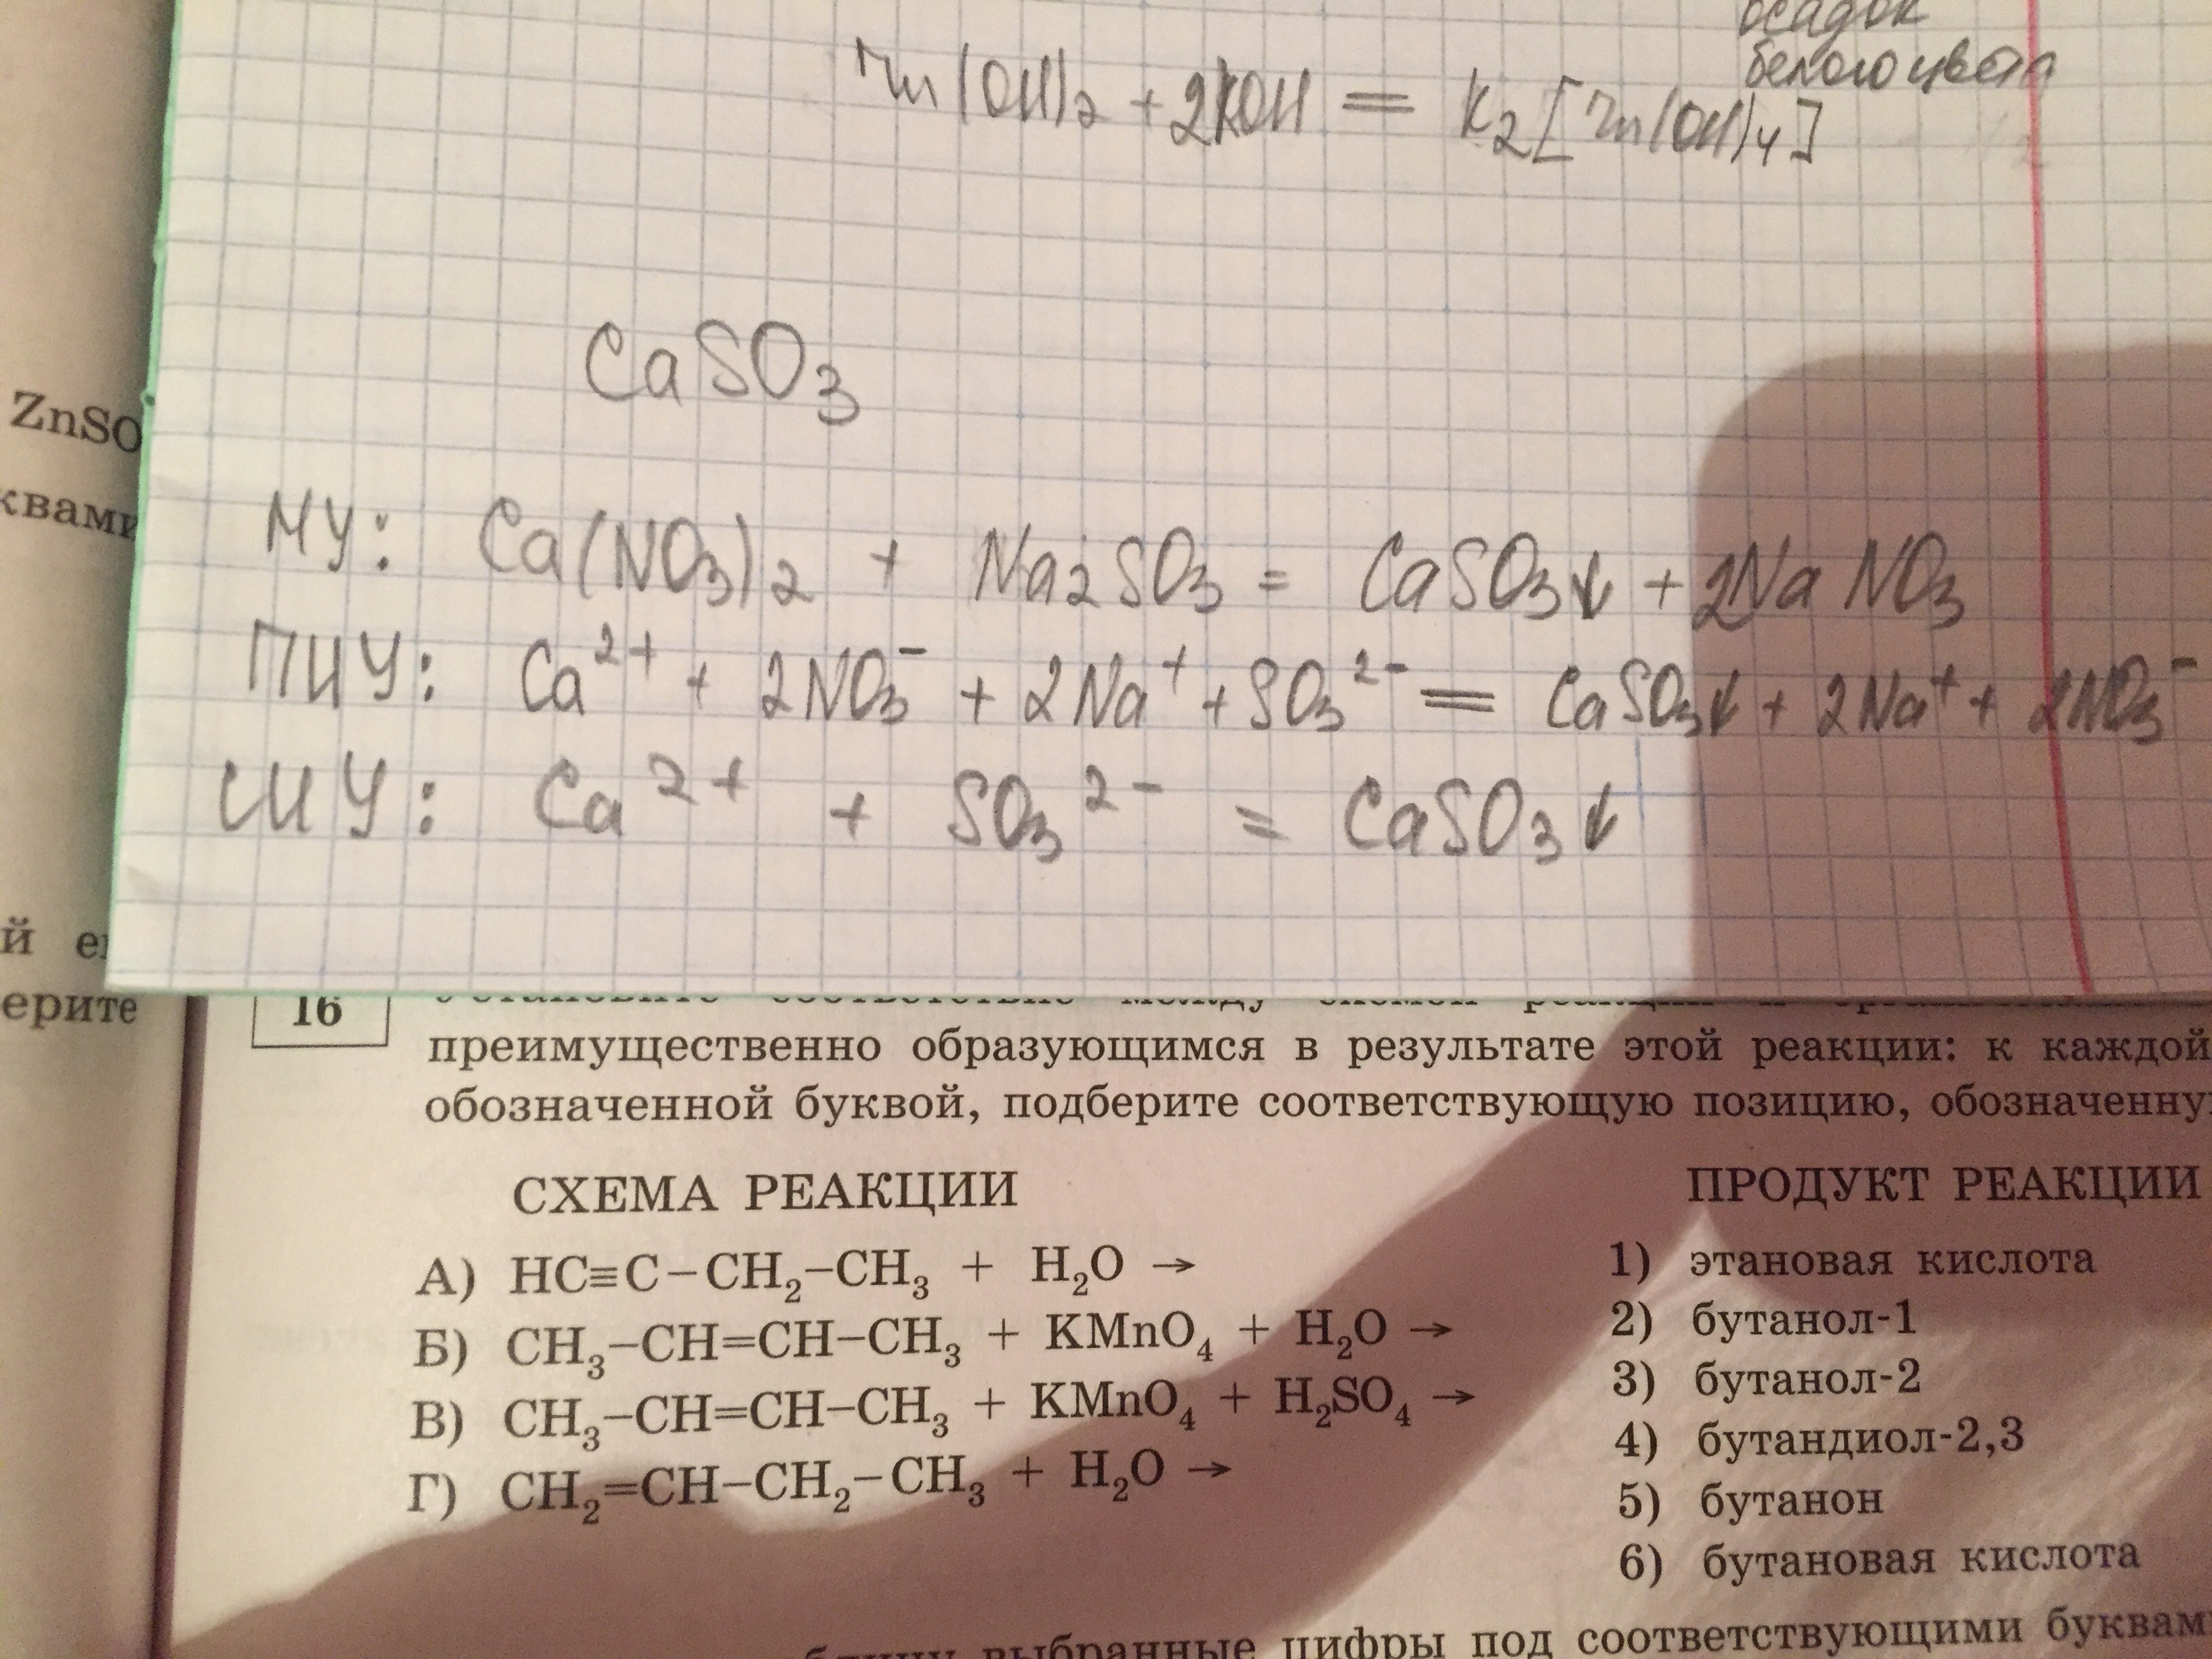 осадок
белого цвета
Zn(OH)₂ + 2KOH = K₂[Zn(OH)₄]
CaSO₃
МУ: Ca(NO₃)₂ + Na₂SO₃ = CaSO₃↓ + 2NaNO₃
ПИУ: Ca²⁺ + 2NO₃⁻ + 2Na⁺ + SO₃²⁻ = CaSO₃↓ + 2Na⁺ + 2NO₃⁻
СИУ: Ca²⁺ + SO₃²⁻ = CaSO₃↓
ZnSO
квами
й
ерите
16
преимущественно образующимся в результате этой реакции: к каждой
обозначенной буквой, подберите соответствующую позицию, обозначенну
СХЕМА РЕАКЦИИ
А) HC≡C–CH₂–CH₃ + H₂O →
Б) CH₃–CH=CH–CH₃ + KMnO₄ + H₂O →
В) CH₃–CH=CH–CH₃ + KMnO₄ + H₂SO₄ →
Г) CH₂=CH–CH₂–CH₃ + H₂O →
ПРОДУКТ РЕАКЦИИ
1) этановая кислота
2) бутанол-1
3) бутанол-2
4) бутандиол-2,3
5) бутанон
6) бутановая кислота
выбранные цифры под соответствующими буквам